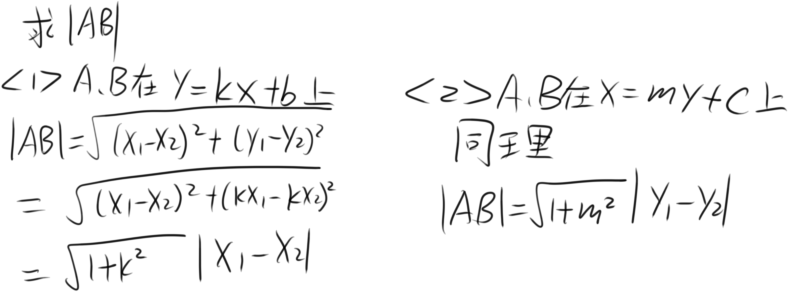 求|AB|
<1> A、B在 y=kx+b上
|AB|=√((x₁-x₂)²+(y₁-y₂)²)
=√((x₁-x₂)²+(kx₁-kx₂)²)
=√(1+k²) |x₁-x₂|
<2> A、B在x=my+c上
同理
|AB|=√(1+m²) |y₁-y₂|